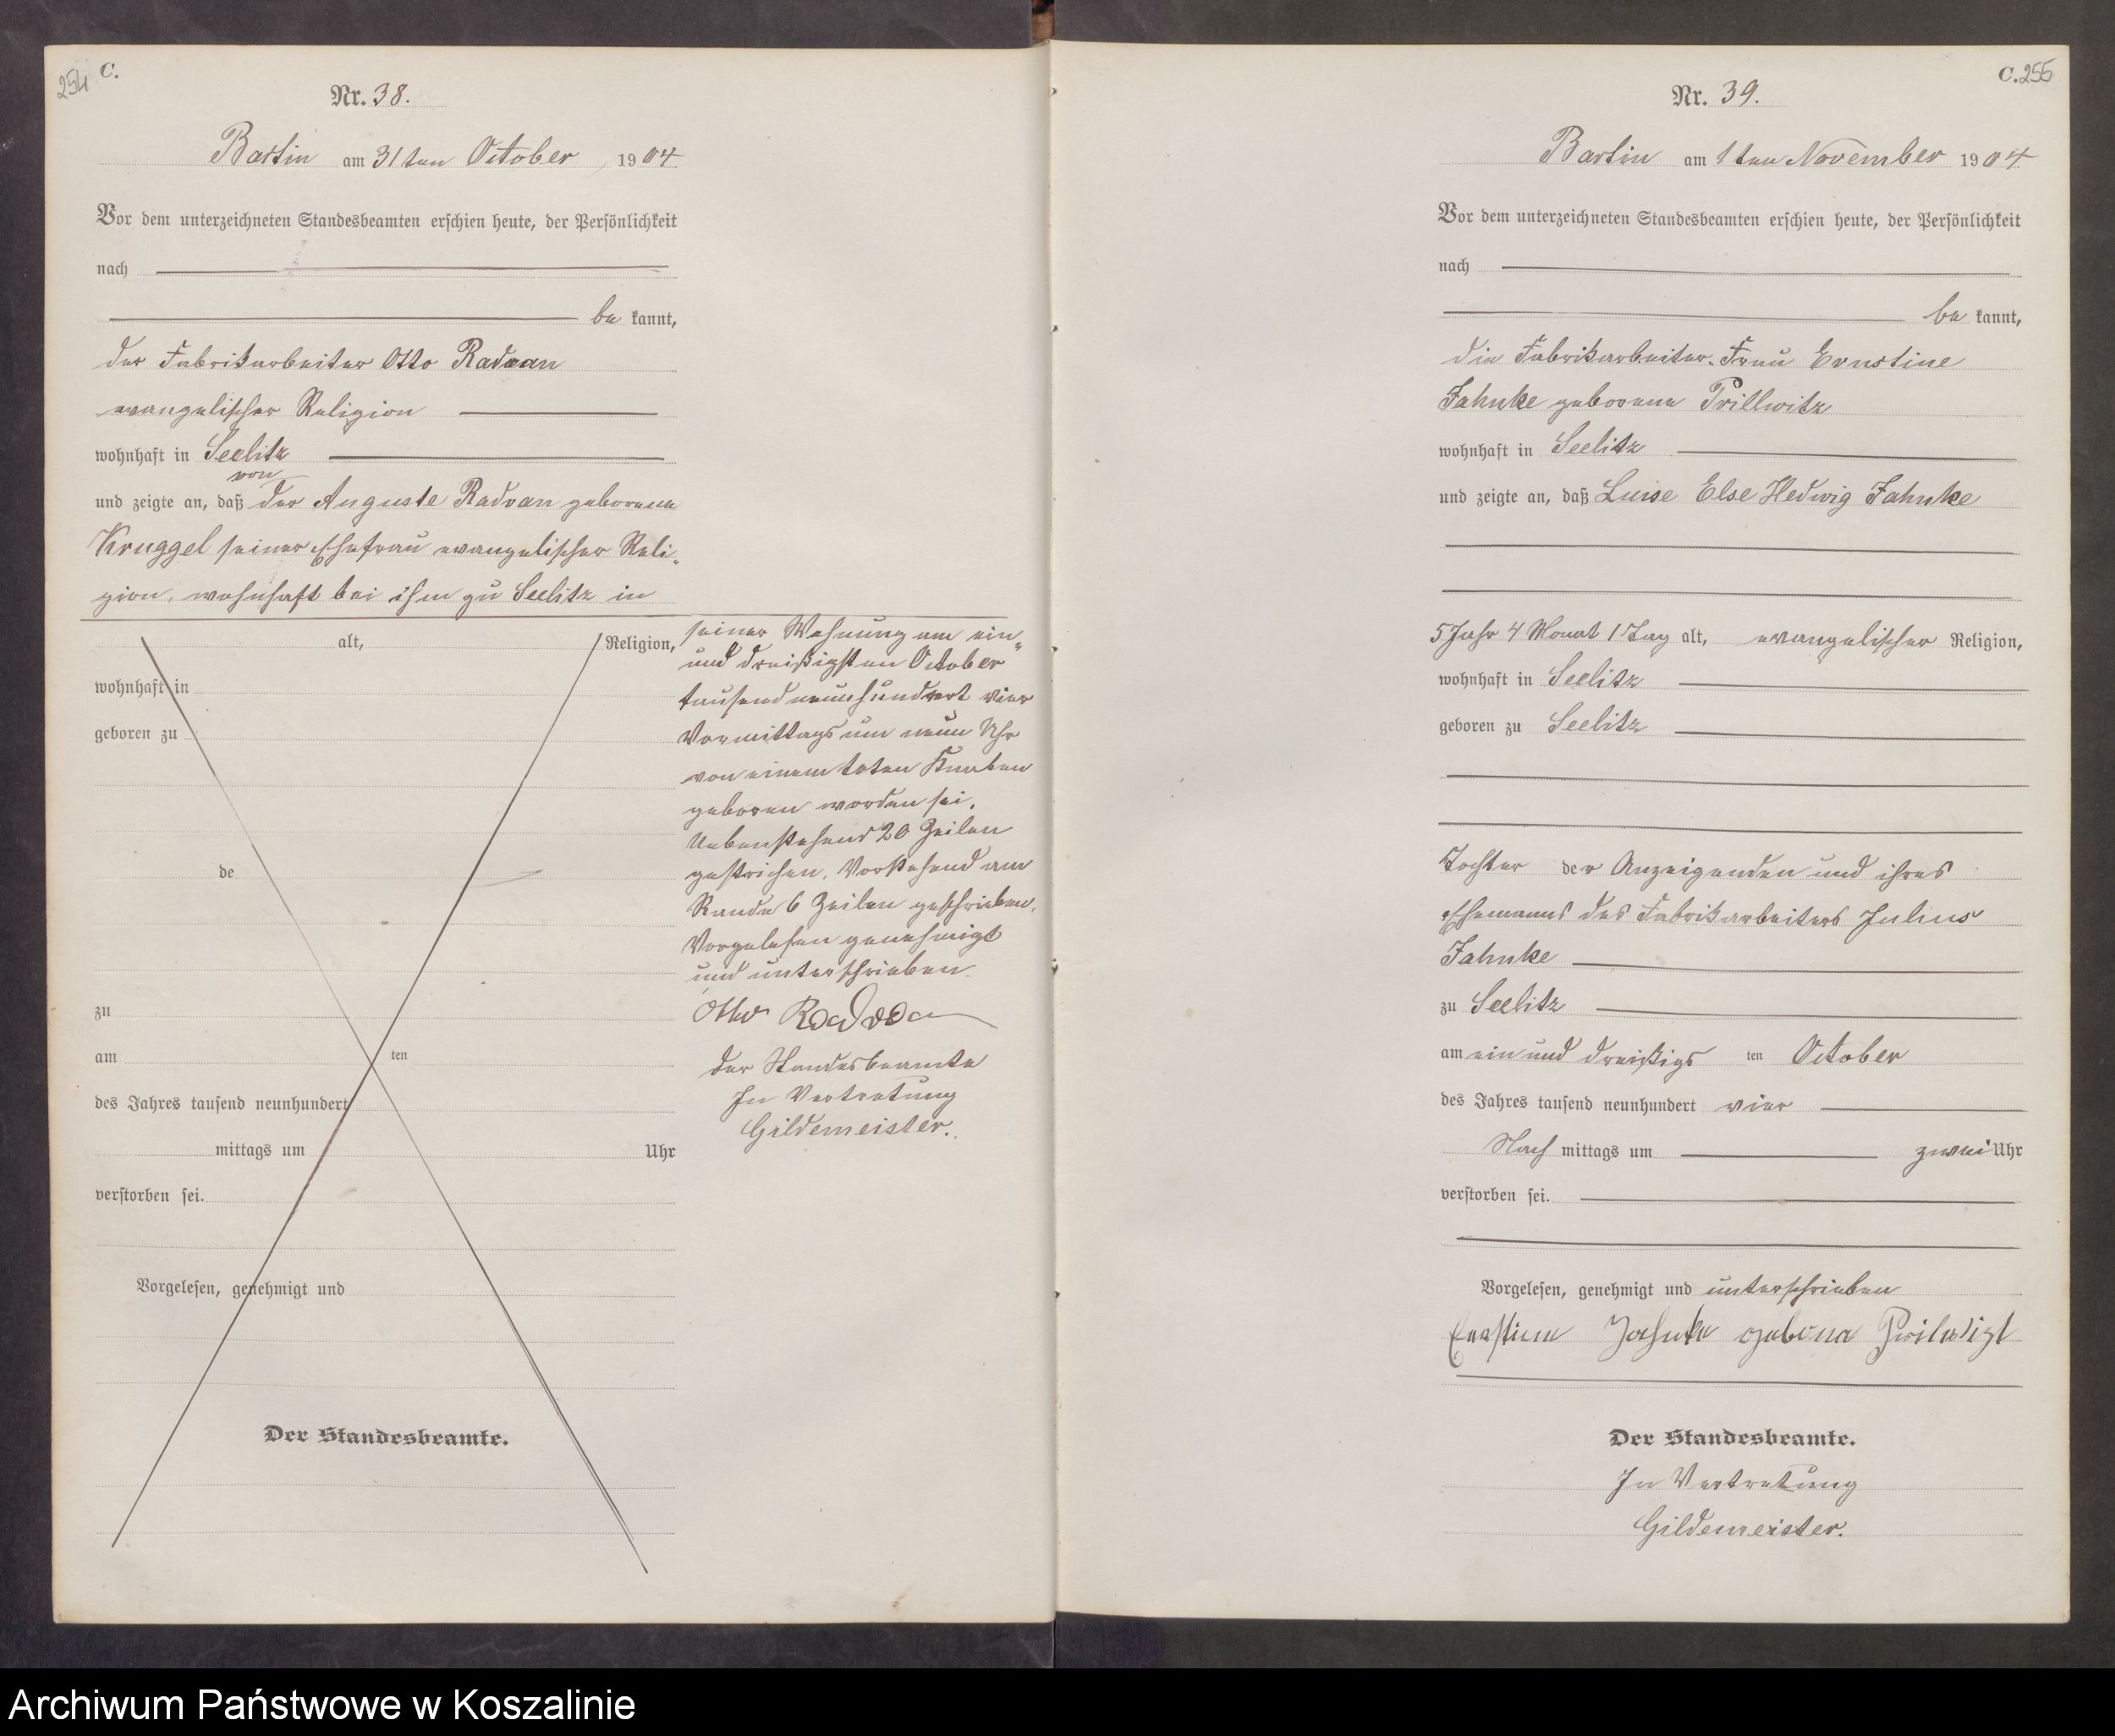 254 C.
Nr. 38.
Bartin am 31ten October 1904
Vor dem unterzeichneten Standesbeamten erschien heute, der Persönlichkeit
nach
be kannt,
der Fabrikarbeiter Otto Radvan
evangelischer Religion
wohnhaft in Seelitz
von
und zeigte an, daß der Auguste Radvan geborene
Kruggel seiner Ehefrau evangelischer Reli-
gion, wohnhaft bei ihm zu Seelitz in
alt, Religion,
wohnhaft in
geboren zu
de
zu
am ten
des Jahres tausend neunhundert
mittags um Uhr
verstorben sei.
Vorgelesen, genehmigt und
Der Standesbeamte.
seiner Wohnung am ein-
und dreißigsten October
tausend neunhundert vier
Vormittags um neun Uhr
von einem toten Knaben
geboren worden sei.
Nebenstehend 20 Zeilen
gestrichen. Vorstehend am
Rande 6 Zeilen geschrieben.
Vorgelesen genehmigt
und unterschrieben.
Otto Radvan
Der Standesbeamte
In Vertretung
Gildemeister.
C. 255
Nr. 39.
Bartin am 1ten November 1904
Vor dem unterzeichneten Standesbeamten erschien heute, der Persönlichkeit
nach
be kannt,
die Fabrikarbeiter-Frau Ernstine
Jahnke geborene Prillwitz
wohnhaft in Seelitz
und zeigte an, daß Luise Else Hedwig Jahnke
5 Jahr 4 Monat 1 Tag alt, evangelischer Religion,
wohnhaft in Seelitz
geboren zu Seelitz
Tochter der Anzeigenden und ihres
Ehemanns des Fabrikarbeiters Julius
Jahnke
zu Seelitz
am ein und dreißigs ten October
des Jahres tausend neunhundert vier
Nach mittags um zwei Uhr
verstorben sei.
Vorgelesen, genehmigt und unterschrieben
Ernstine Jahnke gebona Prilwizt
Der Standesbeamte.
In Vertretung
Gildemeister.
Archiwum Państwowe w Koszalinie